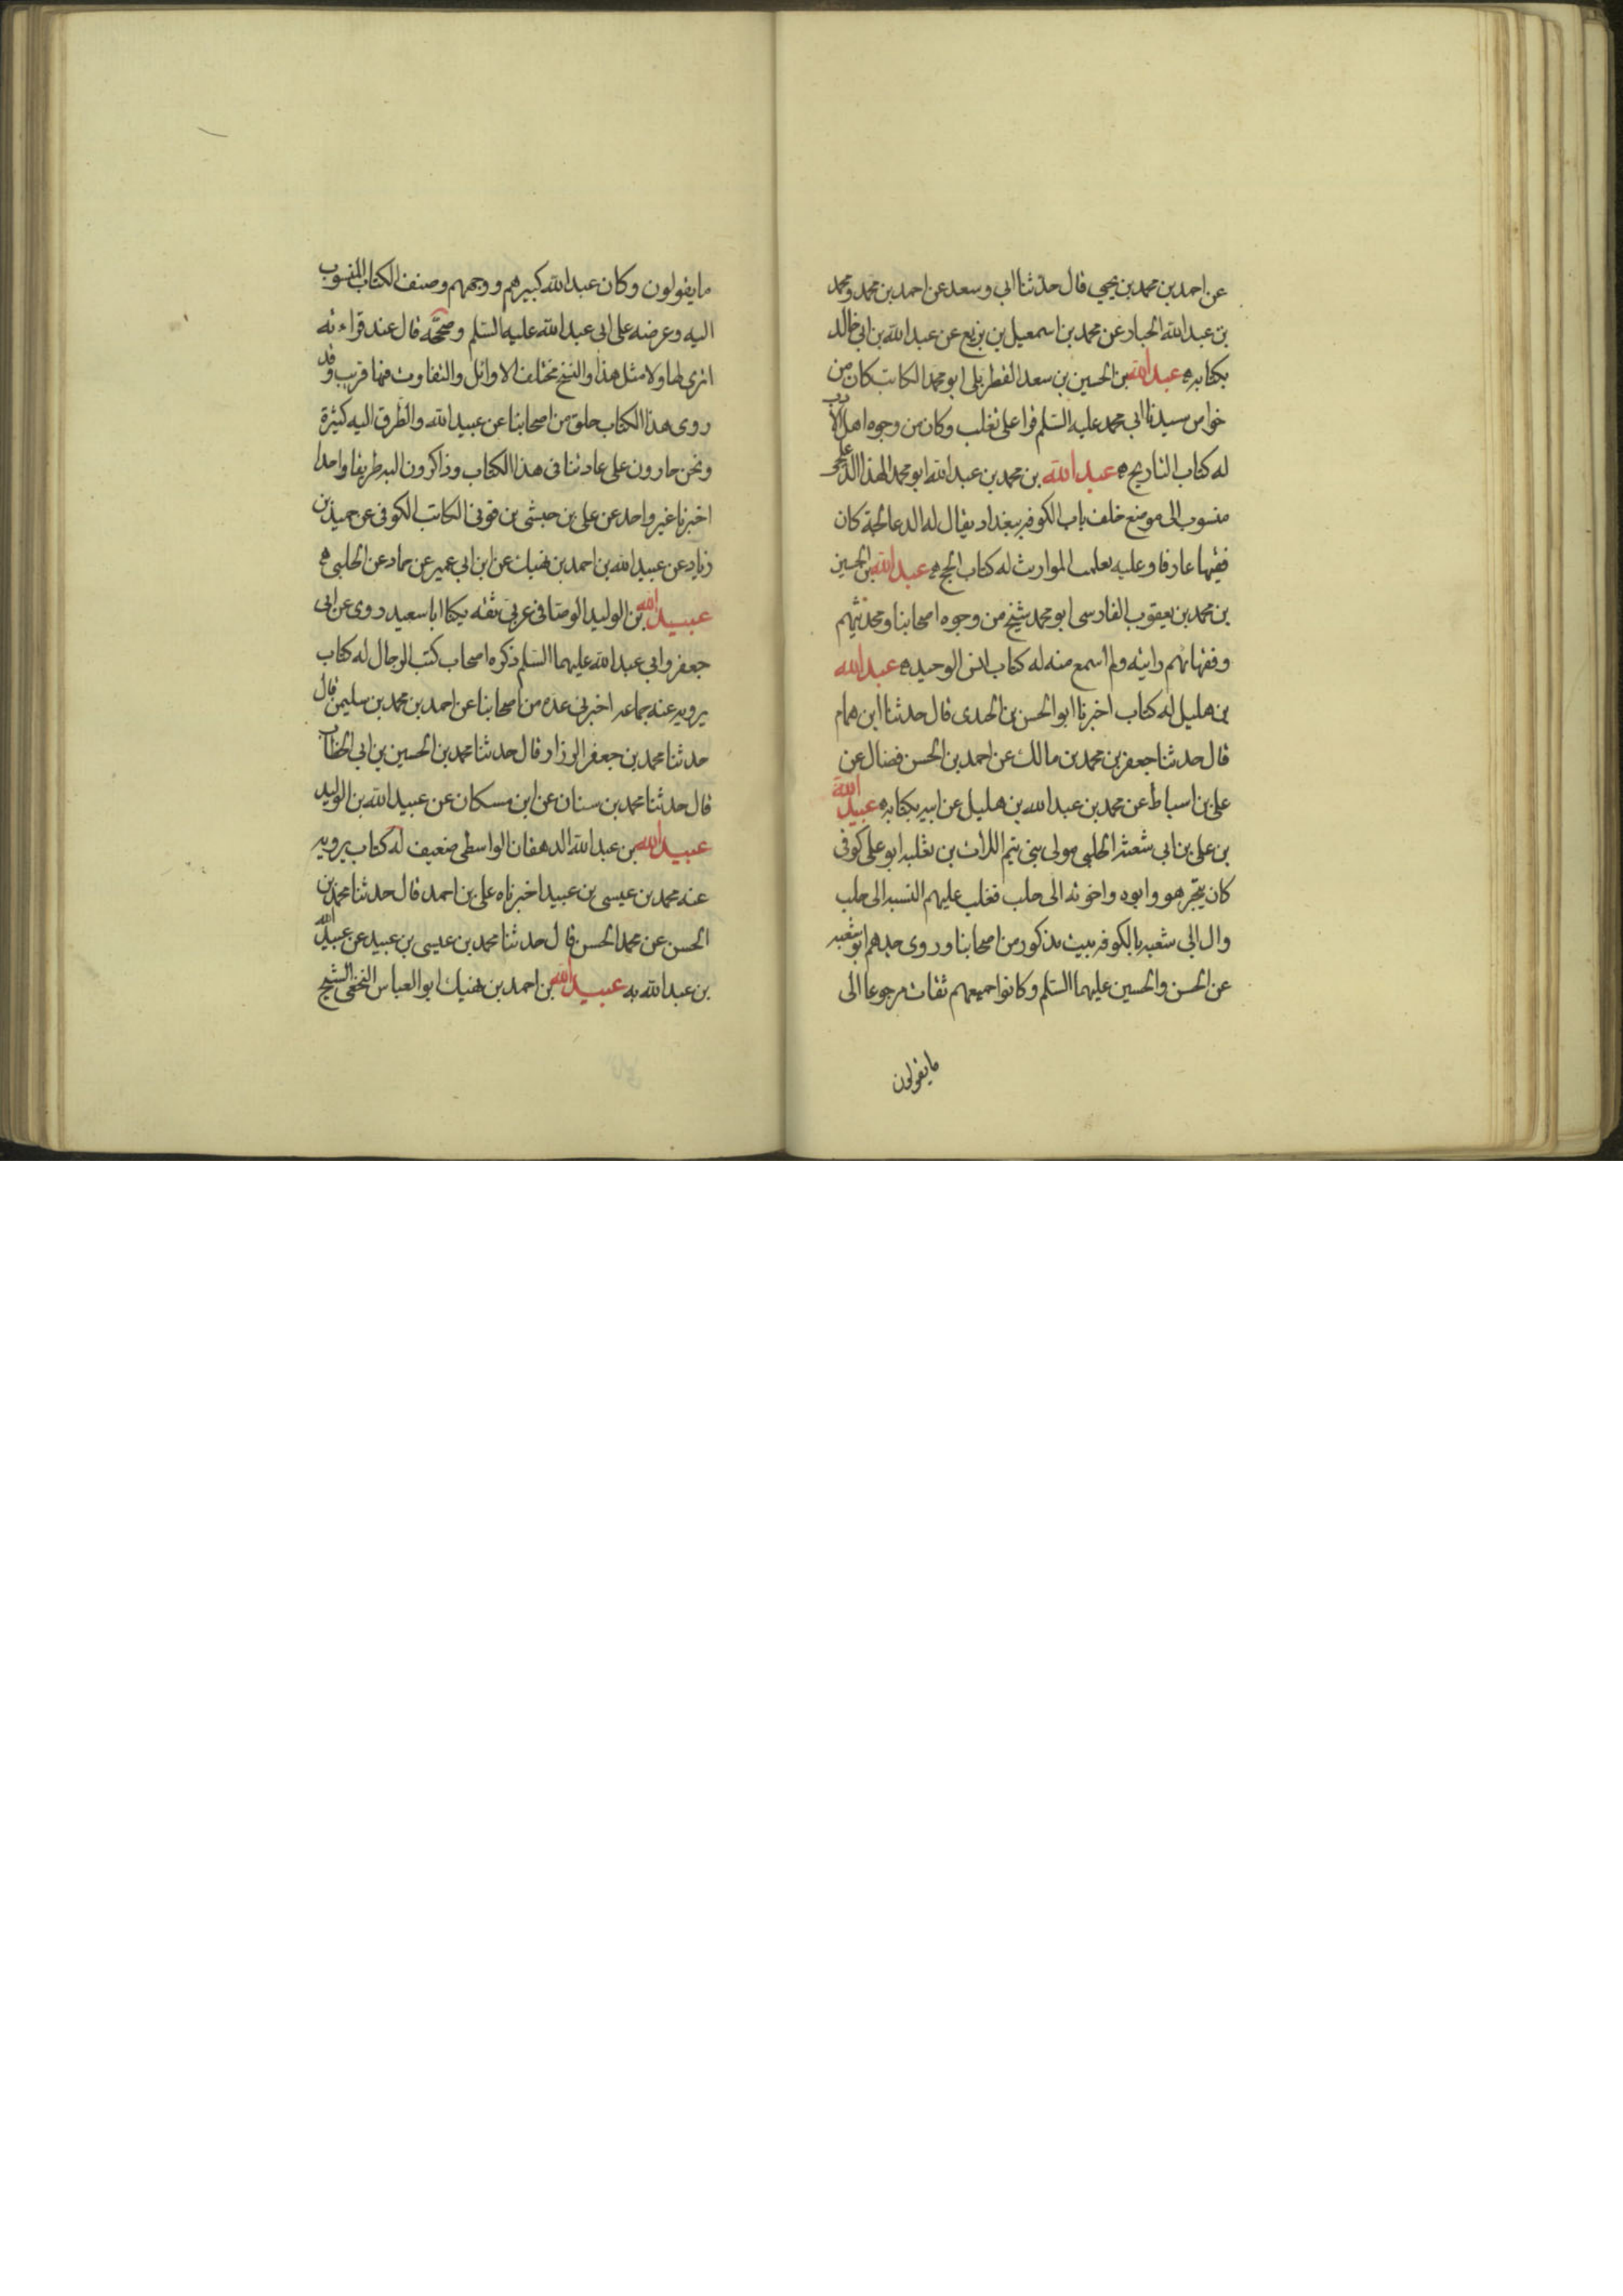 عن احمد بن محمد بن يحيى قال حدثنا ابى وسعد عن احمد بن محمد ومحمد
بن عبد الله الجبار عن محمد بن اسمعيل بن بزيع عن عبد الله بن ابى خالد
بكتابه عبد الله بن الحسين بن سعد القطربلى ابو محمد الكاتب كان من
خواص سيدنا ابى محمد عليه السّلم قرا على ثغلب وكان من وجوه اهل الادب
له كتاب التاريخ عبد الله بن محمد بن عبد الله ابو محمد الهذا الدعلجى
منسوب الى موضع خلف باب الكوفه ببغداد يقال له الدعالجة كان
فقيها عارفا وعليه تعلمت المواريث له كتاب الحج عبد الله بن الحسين
بن محمد بن يعقوب الفارسى ابو محمد شيخ من وجوه اصحابنا ومحدثيهم
وفقهائهم رايته ولم اسمع منه له كتاب انس الوحيد عبد الله
بن هليل له كتاب اخبرنا ابو الحسن بن الجندى قال حدثنا ابن همام
قال حدثنا جعفر بن محمد بن مالك عن احمد بن الحسن فضال عن
على بن اسباط عن محمد بن عبد الله بن هليل عن ابيه بكتابه عبيد الله
بن على بن ابى شعثه الحلبى مولى بنى تيم اللات بن ثعلبه ابو على كوفى
كان يتجر هو وابوه واخوته الى حلب فغلب عليهم النسبه الى حلب
وال ابى شعبه بالكوفه بيت مذكور من اصحابنا وروى جدهم ابو شعبه
عن الحسن والحسين عليهما السّلم وكانوا جميعهم ثقات مرجوعا الى
ما يقولون
ما يقولون وكان عبد الله كبيرهم ووجههم وصنف الكتاب المنسوب
اليه وعرضه على ابى عبد الله عليه السّلم وصححّه قال عند قراءته
اترى لها ولا مثل هذا والنسخ مختلف الاوائل والتفاوت فيها قريب وقد
روى هذا الكتاب خلق من اصحابنا عن عبيد الله والطرق اليه كثيرة
ونحن جارون على عادتنا فى هذا الكتاب وذاكرون اليه طريقا واحدا
اخبرنا غير واحد عن على بن حبشى بن قونى الكاتب الكوفى عن حميد بن
زياد عن عبيد الله بن احمد بن نهيك عن ابن ابى عمير عن حماد عن الحلبى
عبيد الله بن الوليد الوصافى عربى ثقه يكنا ابا سعيد روى عن ابى
جعفر وابى عبد الله عليهما السّلم ذكره اصحاب كتب الرجال له كتاب
يرويه عنه جماعه اخبرنى عده من اصحابنا عن احمد بن محمد بن سليمن قال
حدثنا محمد بن جعفر الرزاز قال حدثنا محمد بن الحسين بن ابى الخطاب
قال حدثنا محمد بن سنان عن ابن مسكان عن عبيد الله بن الوليد
عبيد الله بن عبد الله الدهقان الواسطى ضعيف له كتاب يرويه
عنه محمد بن عيسى بن عبيد اخبرناه على بن احمد قال حدثنا محمد بن
الحسن عن محمد الحسن قال حدثنا محمد بن عيسى بن عبيد عن عبيد الله
بن عبد الله به عبيد الله بن احمد بن نهيك ابو العباس النخعى الشيخ